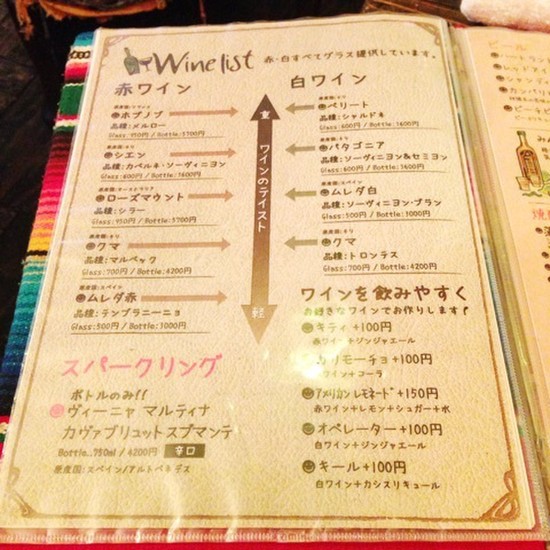 Wine list 赤・白すべてグラス提供しています。
赤ワイン
ホブノブ
品種:メルロー
Glass:950円/Bottle:5700円
シエン
品種:カベルネ・ソーヴィニヨン
Glass:600円/Bottle:3600円
ローズマウント
品種:シラー
Glass:950円/Bottle:5700円
クマ
品種:マルベック
Glass:700円/Bottle:4200円
原産国:スペイン
ムレダ赤
品種:テンプラニーニョ
Glass:500円/Bottle:3000円
重
ワインのテイスト
軽
白ワイン
原産国:チリ
ベリート
品種:シャルドネ
Glass:600円/Bottle:3600円
原産国:チリ
パタゴニア
品種:ソーヴィニヨン&セミヨン
Glass:600円/Bottle:3600円
原産国:スペイン
ムレダ白
品種:ソーヴィニヨン・ブラン
Glass:500円/Bottle:3000円
クマ
品種:トロンテス
Glass:700円/Bottle:4200円
スパークリング
ボトルのみ!!
ヴィーニャ マルティナ
カヴァブリュットスプマンテ
Bottle:750ml/4200円 辛口
原産国:スペイン/アルトペネデス
ワインを飲みやすく
お好きなワインでお作りします!
キティ+100円
赤ワイン+ジンジャエール
カリモーチョ+100円
赤ワイン+コーラ
アメリカン レモネード+150円
赤ワイン+レモン+シュガー+水
オペレーター+100円
白ワイン+ジンジャエール
キール+100円
白ワイン+カシスリキュール